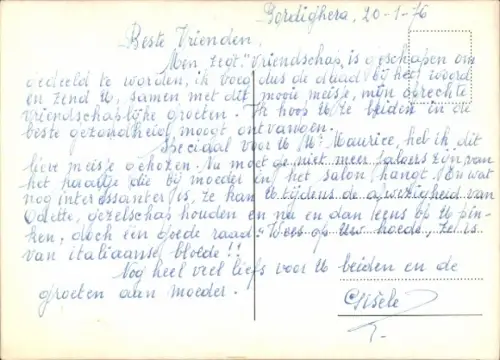 Bordighera, 20-1-76
Beste Vrienden,
Men zegt "vriendschap is geschapen om
gedeeld te worden, ik voeg dus de daad bij het woord
en zend U, samen met dit mooie meisje, mijn oprechte
vriendschaplijke groeten. Ik hoop U ze beiden in de
beste gezondheid moogt ontvangen.
Speciaal voor U Mr Maurice, heb ik dit
lieve meisje gekozen. Nu moet ge niet meer jaloers zijn van
het paartje die bij moeder in het salon hangt. En wat
nog interessanter is, ze kan U tijdens de afwezigheid van
Odette, gezelschap houden en nu en dan eens op U pin-
ken, doch één goede raad "Wees op Uw hoede, ze is
van italiaanse bloede"!!
Nog heel veel liefs voor U beiden en de
groeten aan moeder.
Gisèle